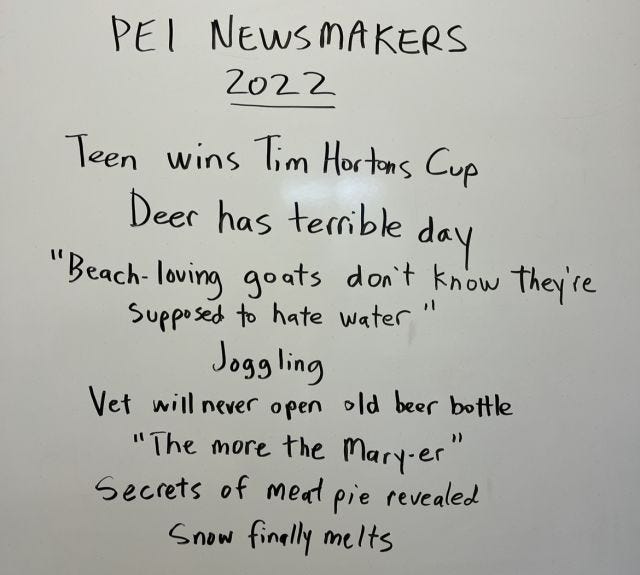 PEI NEWSMAKERS
2022
Teen wins Tim Hortons Cup
Deer has terrible day
"Beach-loving goats don't know they're
supposed to hate water"
Joggling
Vet will never open old beer bottle
"The more the Mary-er"
Secrets of meat pie revealed
Snow finally melts